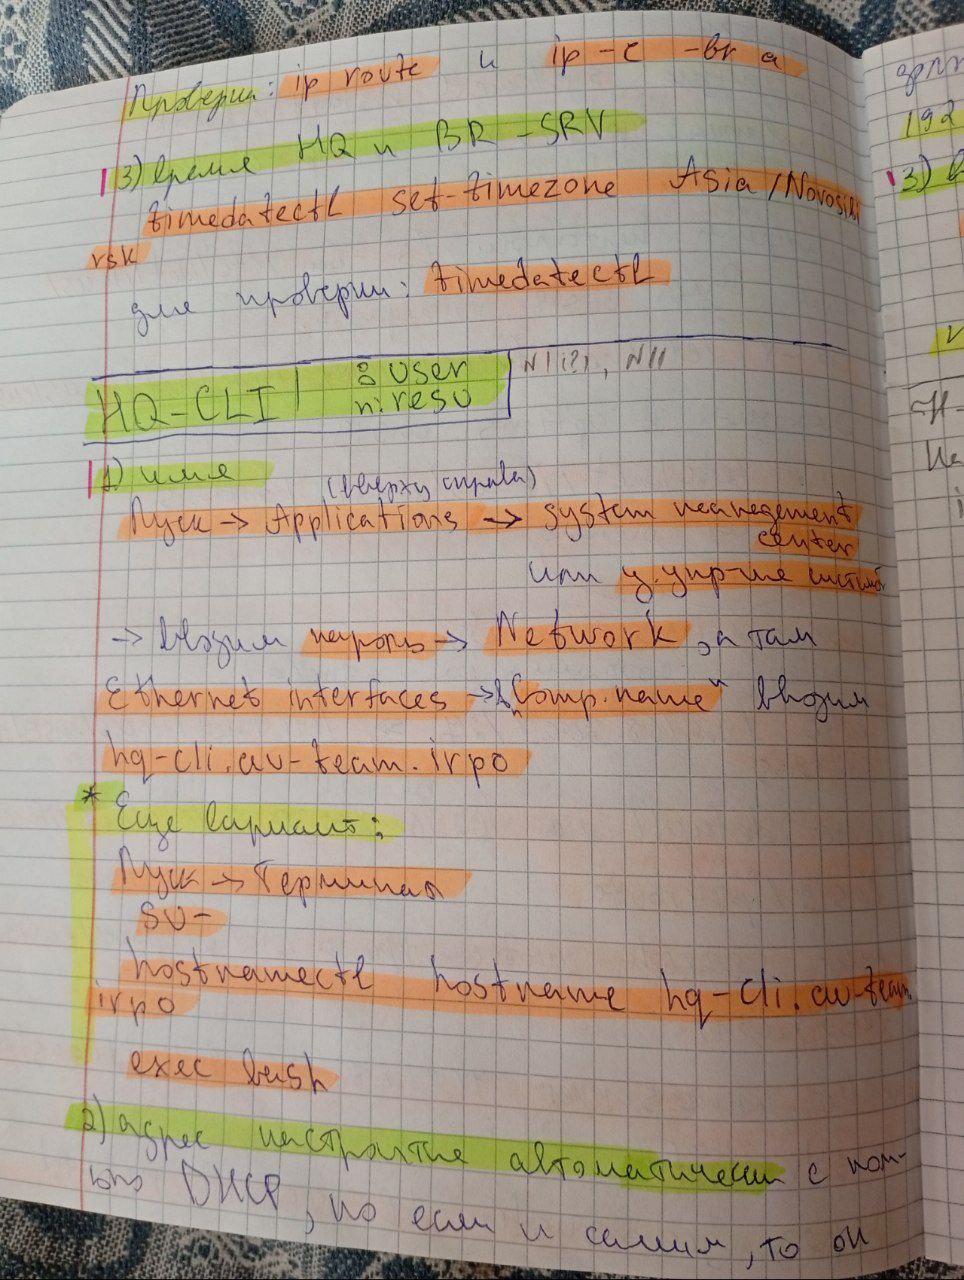 Проверка: ip route и ip -c -br a
3) время HQ и BR-SRV
timedatectl set-timezone Asia/Novosibi
rsk
для проверки: timedatectl
HQ-CLI : user
п: resu
N1(2), N11
1) имя
(вверху справа)
Пуск → Applications → system management
center
или ц.упр-ние системой
→ вводим пароль → Network, а там
Ethernet interfaces → в "Comp.name" вводим
hq-cli.au-team.irpo
* Еще вариант:
Пуск → Терминал
su-
hostnamectl hostname hq-cli.au-team.
irpo
exec bash
2) адрес настроится автоматически с пом-
ью DHCP, но если и самим, то он
192
3)